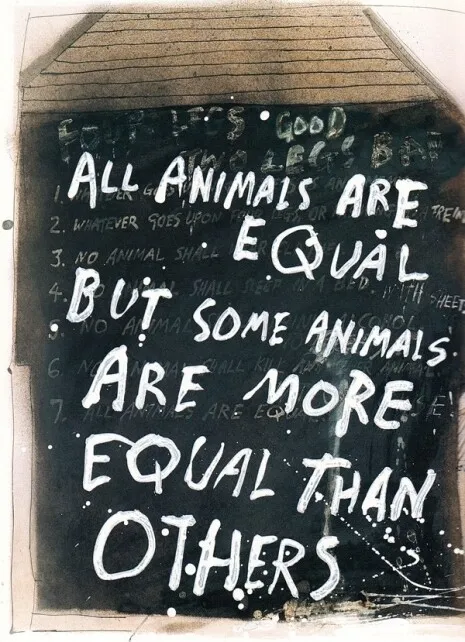 FOUR LEGS GOOD
TWO LEGS BAD
ALL ANIMALS ARE
EQUAL
BUT SOME ANIMALS
ARE MORE
EQUAL THAN
OTHERS
1.
2. WHATEVER GOES UPON FOUR LEGS, OR
3. NO ANIMAL SHALL
4. ANIMAL SHALL SLEEP IN A BED. WITH SHEETS
5. NO ANIMAL ALCOHOL
6. NO ANIMAL SHALL KILL ANY ANIMAL
7. ALL ANIMALS ARE EQUAL